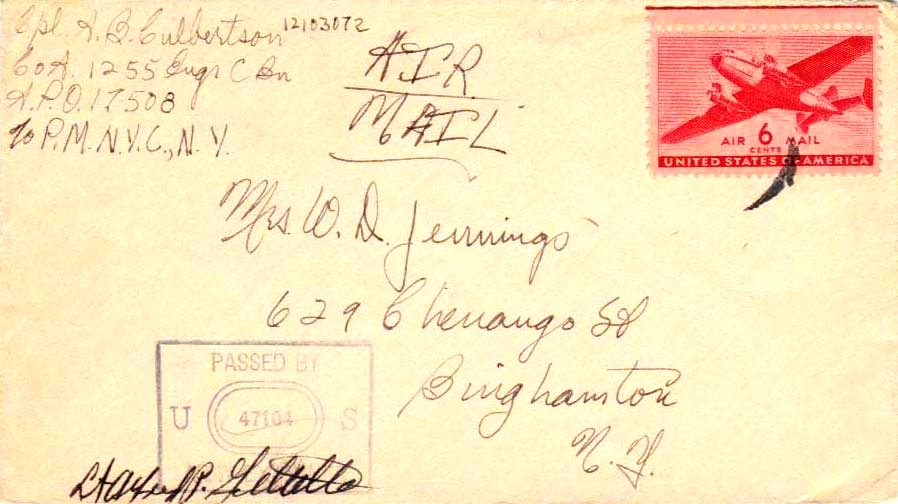 Cpl. A. B. Culbertson 12103072
Co A. 1255 Engr C Bn
A.P.O. 17508
c/o P.M. N.Y.C., N.Y.
AIR
MAIL
AIR 6 MAIL
CENTS
UNITED STATES OF AMERICA
Mrs. W. D. Jennings
629 Chenango St
Binghamton
N.Y.
PASSED BY
U 47104 S